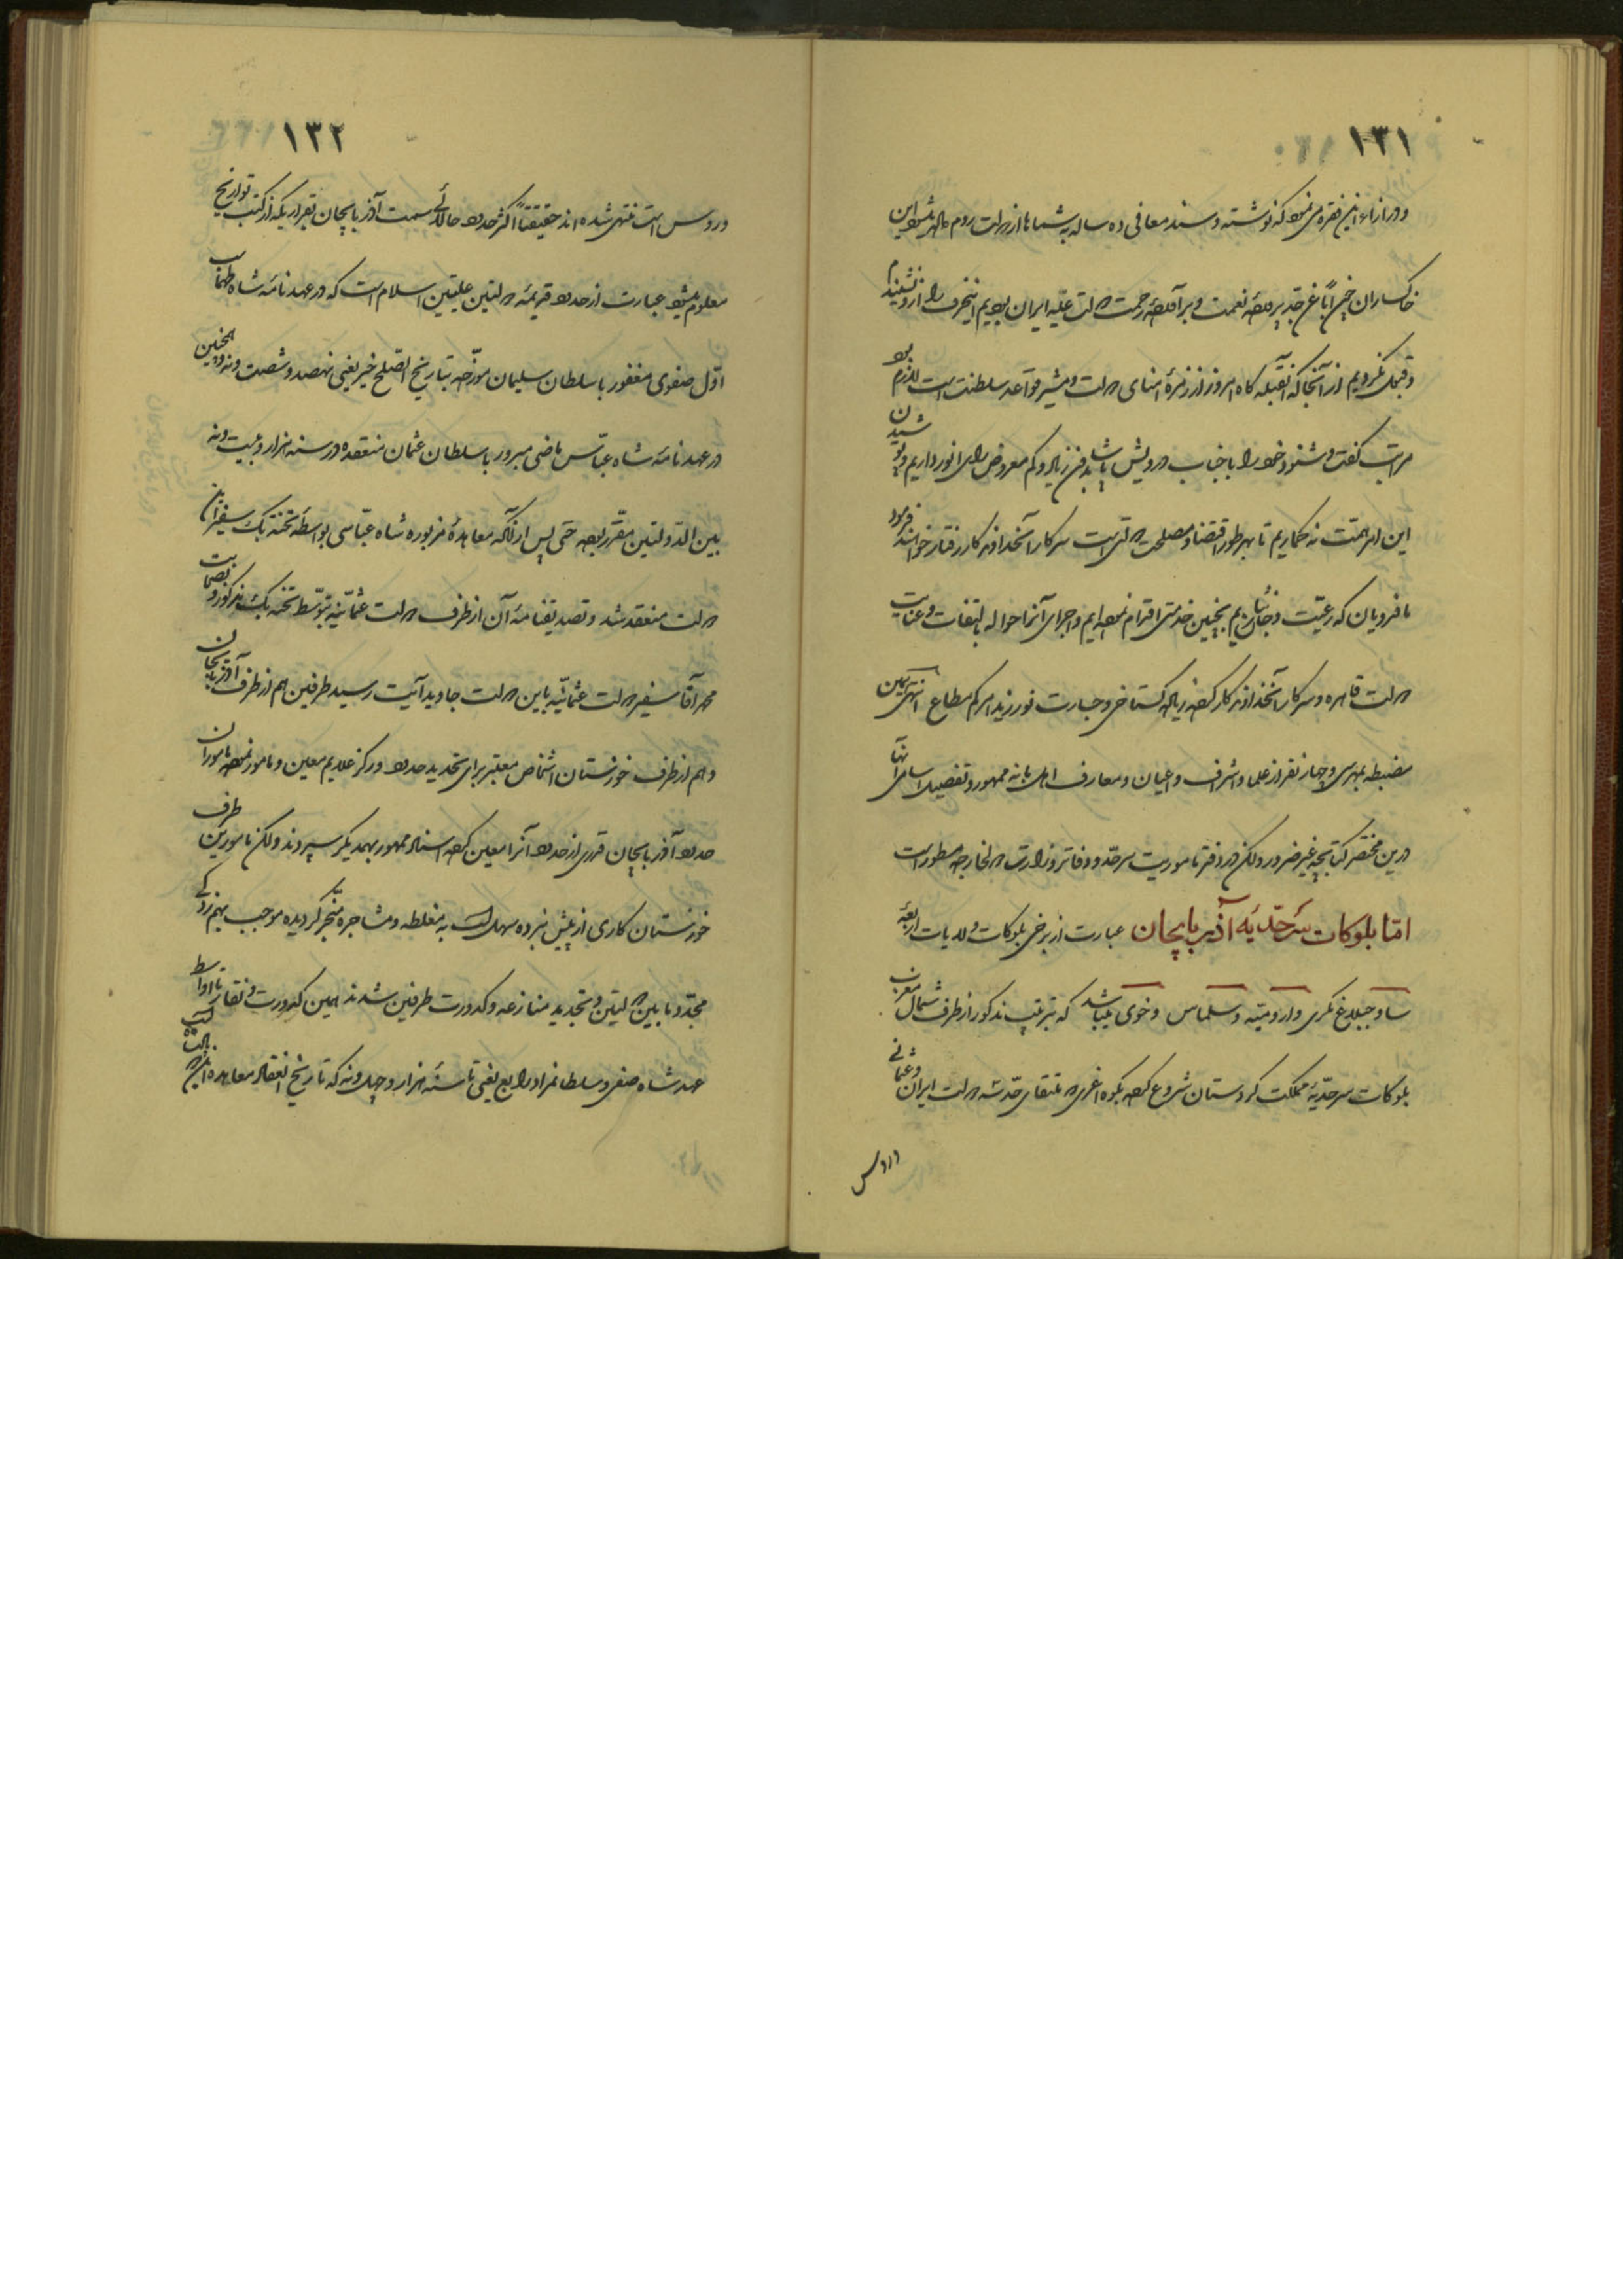 ۱۳۱
و در ازاء این فقره می‌نمود که نوشته و سند معافی ده ساله به شماها از دولت روم داده میشود این
خاکساران چون اباً عن جد پرورده نعمت و برآورده رحمت دولت علیه ایران بودیم اینحرف را از او نشنیدیم
و قبول نکردیم از آنجا که آنقبله گاه امروز از زمرهٔ امنای دولت و مشیر قواعد سلطنت است لازم بود
مراتب گفت و شنود خود را با جناب درویش پاشا بدون زیاد و کم معروض رای انور داریم و
این امر همت نه گماریم تا بهر طور اقتضا و مصلحت دولتی است سرکار آنخداوندگار رفتار خواهند فرمود
ما فدویان که رعیت و جان‌نثاریم بچنین خدمتی اقدام نموده‌ایم و اجرای آنرا حواله بالتفات و عنایت
دولت قاهره و سرکار آنخداوندگار کرده زیاده گستاخی و جسارت نورزید امرکم مطاع انتهی
مضبطه بمهر سی و چهار نفر از علما و اشراف و اعیان و معارف اهل بانه ممهور و تفصیل اسامی آنها
درین مختصر کتابچه غیر ضرور ولکن در دفتر ماموریت سرحد و دفاتر وزارت دول خارجه مسطور است
امّا بلوکات سَرحدّیَه آذربایجان عبارت از برخی بلوکات ولایات اربعهٔ
ساوجبلاغ مکری و ارومیّه و سلماس و خوی میباشد که بترتیب مذکور از طرف شمال مغرب
بلوکات سرحدّیهٔ مملکت کردستان شروع کرده بکوه اغری که ملتقای حدّ سه دولت ایران و عثمانی
و روس
۱۳۲
و روس است منتهی شده‌اند حقیقتاً اکثر حدود حالائی سمت آذربایجان بقراریکه از کتب تواریخ
معلوم میشود عبارت از حدود قدیمهٔ دولتین علیتین اسلام است که در عهدنامهٔ شاه طهماسب
اوّل صفوی مغفور با سلطان سلیمان مورّخه بتاریخ الصّلح خیر یعنی نهصد و شصت و نه و همچنین
در عهدنامهٔ شاه عبّاس ماضی مبرور با سلطان عثمان منعقده در سنه هزار و بیست و نه
بین الدّولتین مقرّر بوده حتی پس از آنکه معاهدهٔ مزبوره شاه عبّاسی بواسطه تخته بک سفیر این
دولت منعقد شد و تصدیقنامهٔ آن از طرف دولت عثمانیّه بتوسّط تخته بک مذکور و
محمد آقا سفیر دولت عثمانیّه باین دولت جاوید آیت رسید طرفین هم از طرف آذربایجان
و هم از طرف خوزستان اشخاص معتبر برای تحدید حدود و رکز علایم معین و مامور نموده مامورین
حدود آذربایجان قدری از حدود آنرا معین کرده اسناد ممهور بهمدیگر سپردند ولکن مامورین طرف
خوزستان کاری از پیش نبرده سهل است به مغلطه و مشاجره منجر گردیده موجب بهم‌زدگی
مجدّد مابین دولتین و تجدید منازعه و کدورت طرفین شدند همین کدورت و نقار تا اواسط
عهد شاه صفی و سلطانمراد رابع یعنی تا سنهٔ هزار و چهل و نه که تاریخ انعقاد معاهده